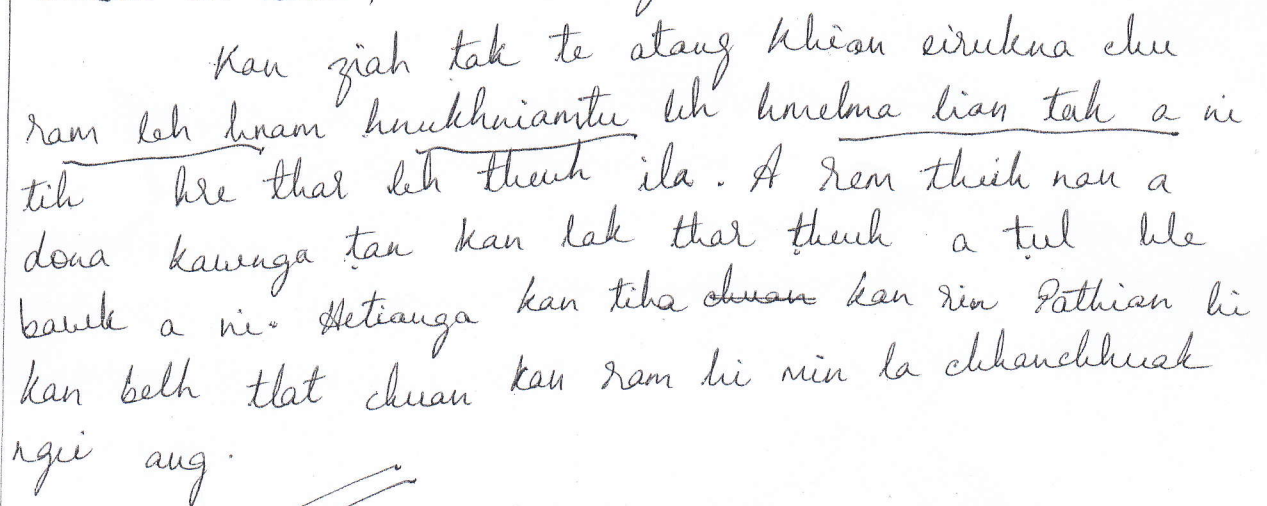 Kan ziah tak te atang khian eirukna chu
ram leh hnam hnukhniamtu leh hmelma lian tak a ni
tih hre thar leh theuh ila. A rem theih nan a
dona kawnga ṭan kan lak thar ṭheuh a ṭul hle
bawk a ni. Hetianga kan tiha chuan kan rin Pathian hi
kan belh tlat chuan kan ram hi min la chhanchhuak
ngei ang.